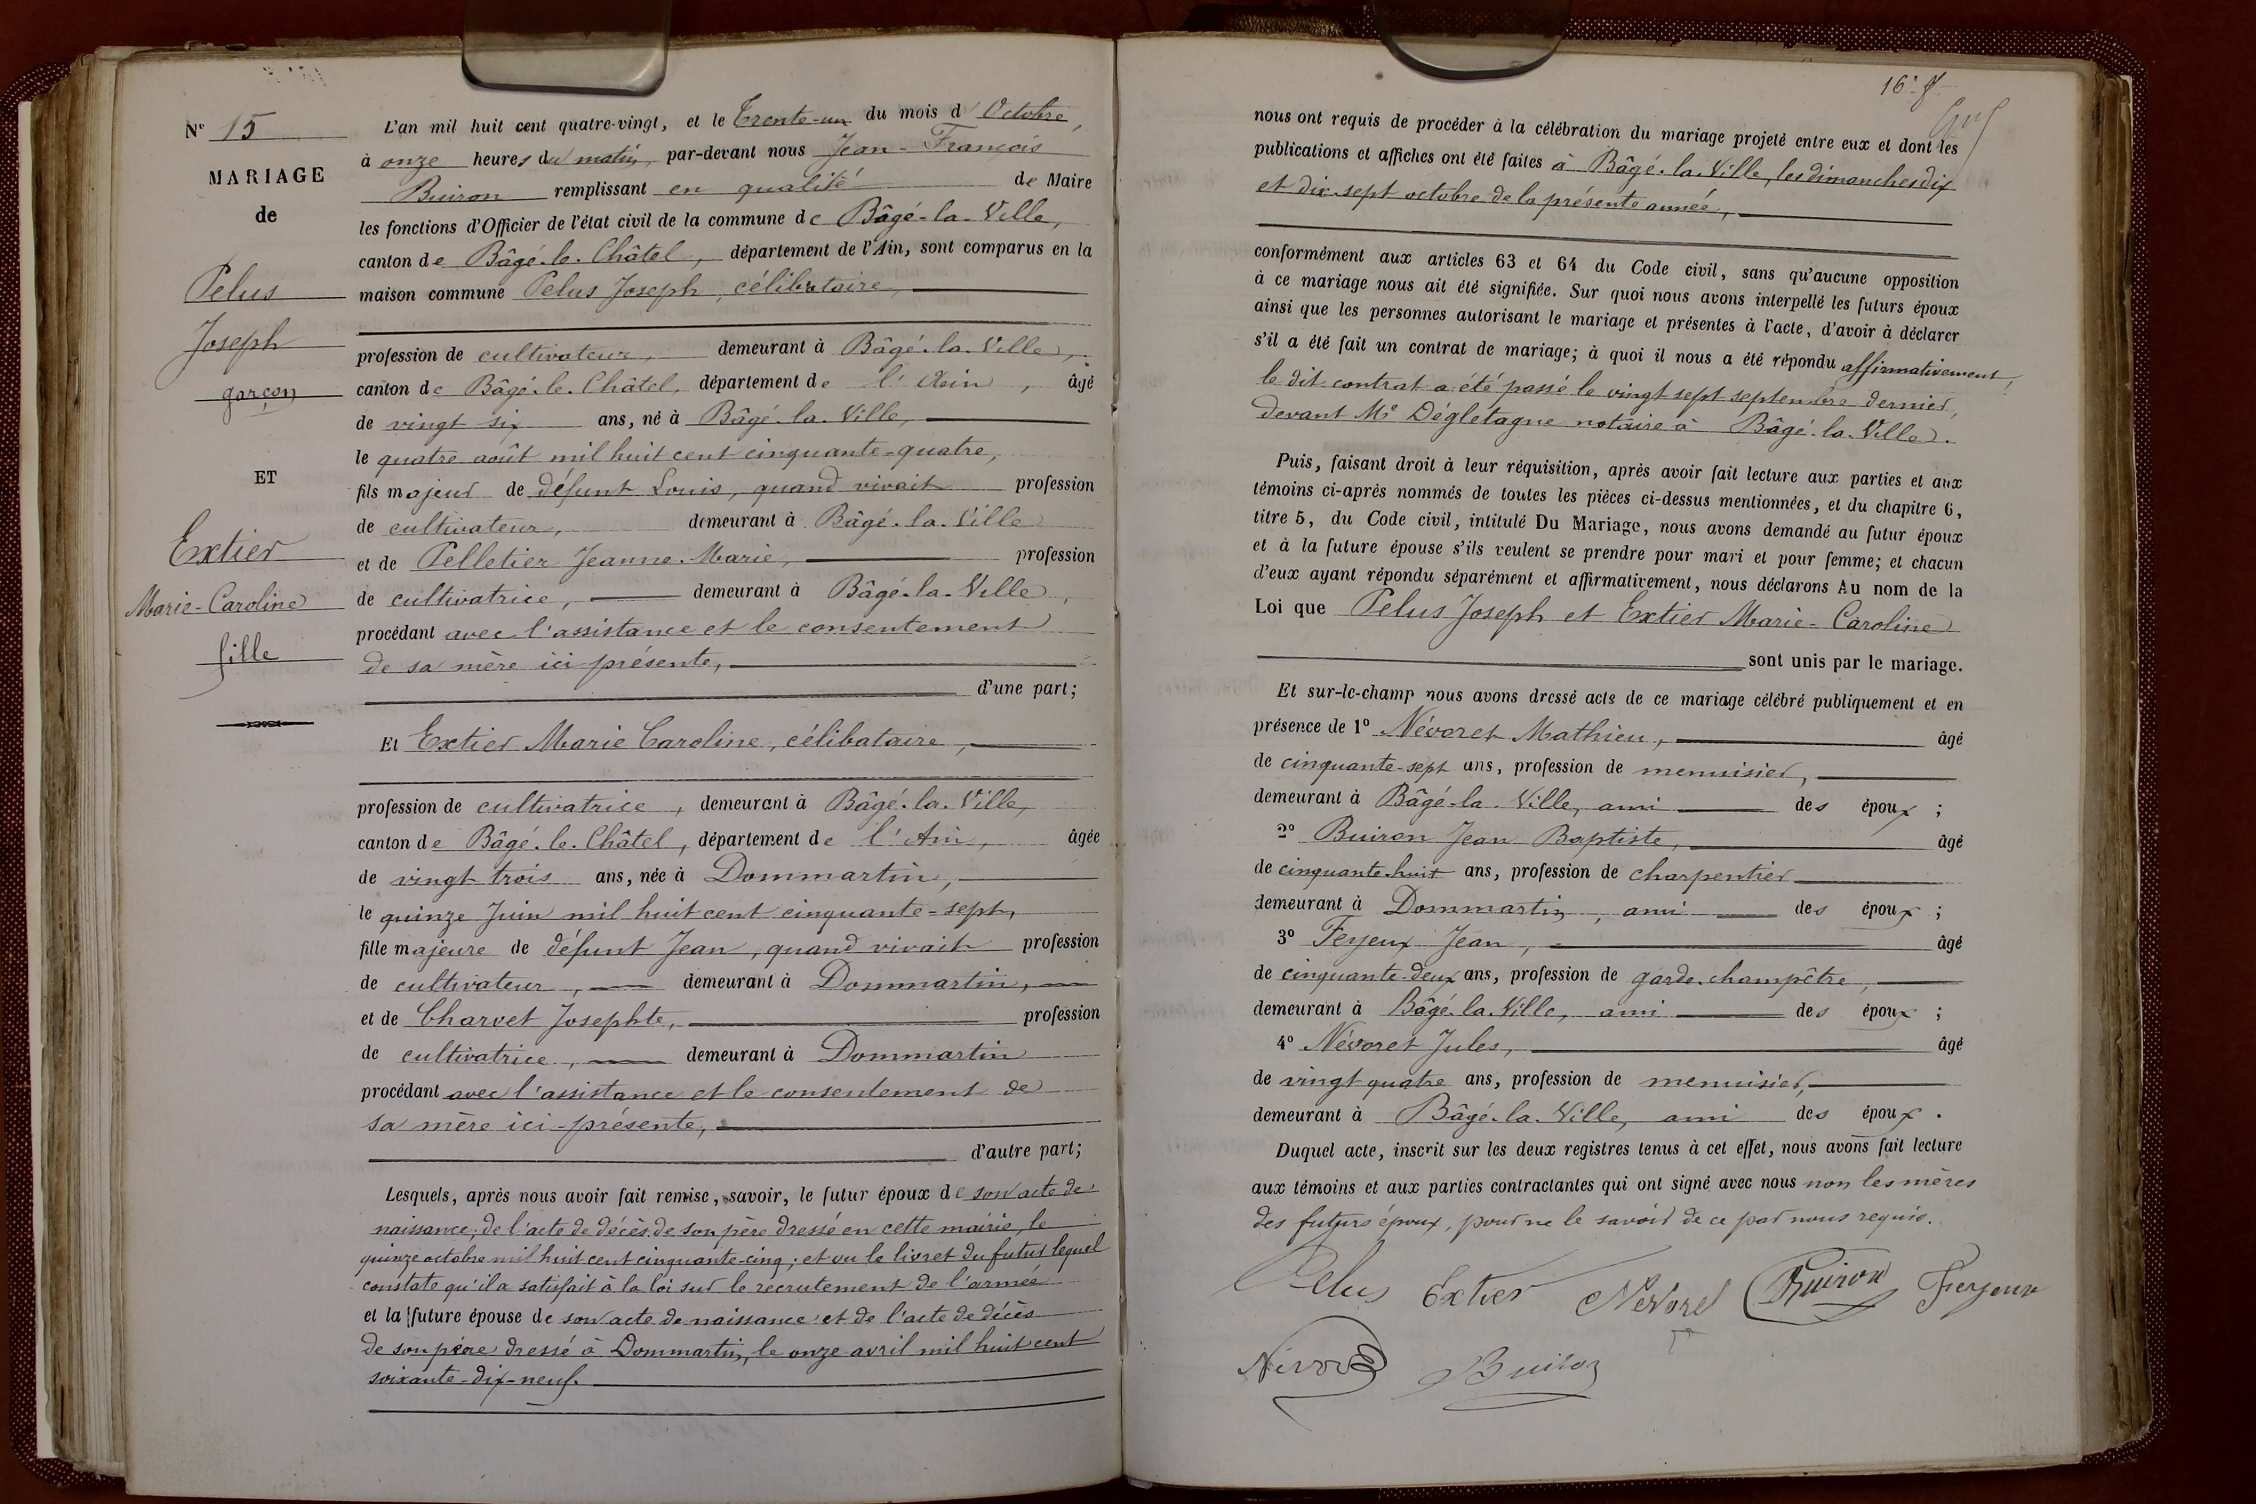 N° 15
MARIAGE
de
Pelus
Joseph
garçon
ET
Extier
Marie-Caroline
fille
L'an mil huit cent quatre-vingt, et le Trente-un du mois d'Octobre,
à onze heures du matin, par-devant nous Jean-François
Buiron remplissant en qualité de Maire
les fonctions d'Officier de l'état civil de la commune de Bâgé-la-Ville,
canton de Bâgé-le-Châtel, département de l'Ain, sont comparus en la
maison commune Pelus Joseph, célibataire,
profession de cultivateur, demeurant à Bâgé-la-Ville,
canton de Bâgé-le-Châtel, département de l'Ain, âgé
de vingt six ans, né à Bâgé-la-Ville,
le quatre août mil huit cent cinquante-quatre,
fils majeur de défunt Louis, quand vivait profession
de cultivateur, demeurant à Bâgé-la-Ville
et de Pelletier Jeanne-Marie, profession
de cultivatrice, demeurant à Bâgé-la-Ville,
procédant avec l'assistance et le consentement
de sa mère ici présente,
d'une part;
Et Extier Marie Caroline, célibataire,
profession de cultivatrice, demeurant à Bâgé-la-Ville,
canton de Bâgé-le-Châtel, département de l'Ain, âgée
de vingt trois ans, née à Dommartin,
le quinze Juin mil huit cent cinquante-sept,
fille majeure de défunt Jean, quand vivait profession
de cultivateur, demeurant à Dommartin,
et de Charvet Josephte, profession
de cultivatrice, demeurant à Dommartin
procédant avec l'assistance et le consentement de
sa mère ici-présente,
d'autre part;
Lesquels, après nous avoir fait remise, savoir, le futur époux de son acte de
naissance; de l'acte de décès de son père dressé en cette mairie, le
quinze octobre mil huit cent cinquante-cinq; et vu le livret du futur lequel
constate qu'il a satisfait à la loi sur le recrutement de l'armée
et la future épouse de son acte de naissance et de l'acte de décès
de son père dressé à Dommartin, le onze avril mil huit cent
soixante-dix-neuf.
16e f
nous ont requis de procéder à la célébration du mariage projeté entre eux et dont les
publications et affiches ont été faites à Bâgé-la-Ville, les dimanches dix
et dix-sept octobre de la présente année,
conformément aux articles 63 et 64 du Code civil, sans qu'aucune opposition
à ce mariage nous ait été signifiée. Sur quoi nous avons interpellé les futurs époux
ainsi que les personnes autorisant le mariage et présentes à l'acte, d'avoir à déclarer
s'il a été fait un contrat de mariage; à quoi il nous a été répondu affirmativement,
le dit contrat a été passé le vingt sept septembre dernier,
devant Me Dégletagne notaire à Bâgé-la-Ville.
Puis, faisant droit à leur réquisition, après avoir fait lecture aux parties et aux
témoins ci-après nommés de toutes les pièces ci-dessus mentionnées, et du chapitre 6,
titre 5, du Code civil, intitulé Du Mariage, nous avons demandé au futur époux
et à la future épouse s'ils veulent se prendre pour mari et pour femme; et chacun
d'eux ayant répondu séparément et affirmativement, nous déclarons Au nom de la
Loi que Pelus Joseph et Extier Marie-Caroline
sont unis par le mariage.
Et sur-le-champ nous avons dressé acte de ce mariage célébré publiquement et en
présence de 1° Névoret Mathieu, âgé
de cinquante-sept ans, profession de menuisier,
demeurant à Bâgé-la-Ville, ami des époux;
2° Buiron Jean Baptiste, âgé
de cinquante-huit ans, profession de charpentier
demeurant à Dommartin, ami des époux;
3° Feyeux Jean, âgé
de cinquante-deux ans, profession de garde-champêtre,
demeurant à Bâgé-la-Ville, ami des époux;
4° Névoret Jules, âgé
de vingt quatre ans, profession de menuisier,
demeurant à Bâgé-la-Ville, ami des époux.
Duquel acte, inscrit sur les deux registres tenus à cet effet, nous avons fait lecture
aux témoins et aux parties contractantes qui ont signé avec nous non les mères
des futurs époux, pour ne le savoir de ce par nous requis.
Pelus Extier Nevoret Buiron Feyeux
Névoret Buiron